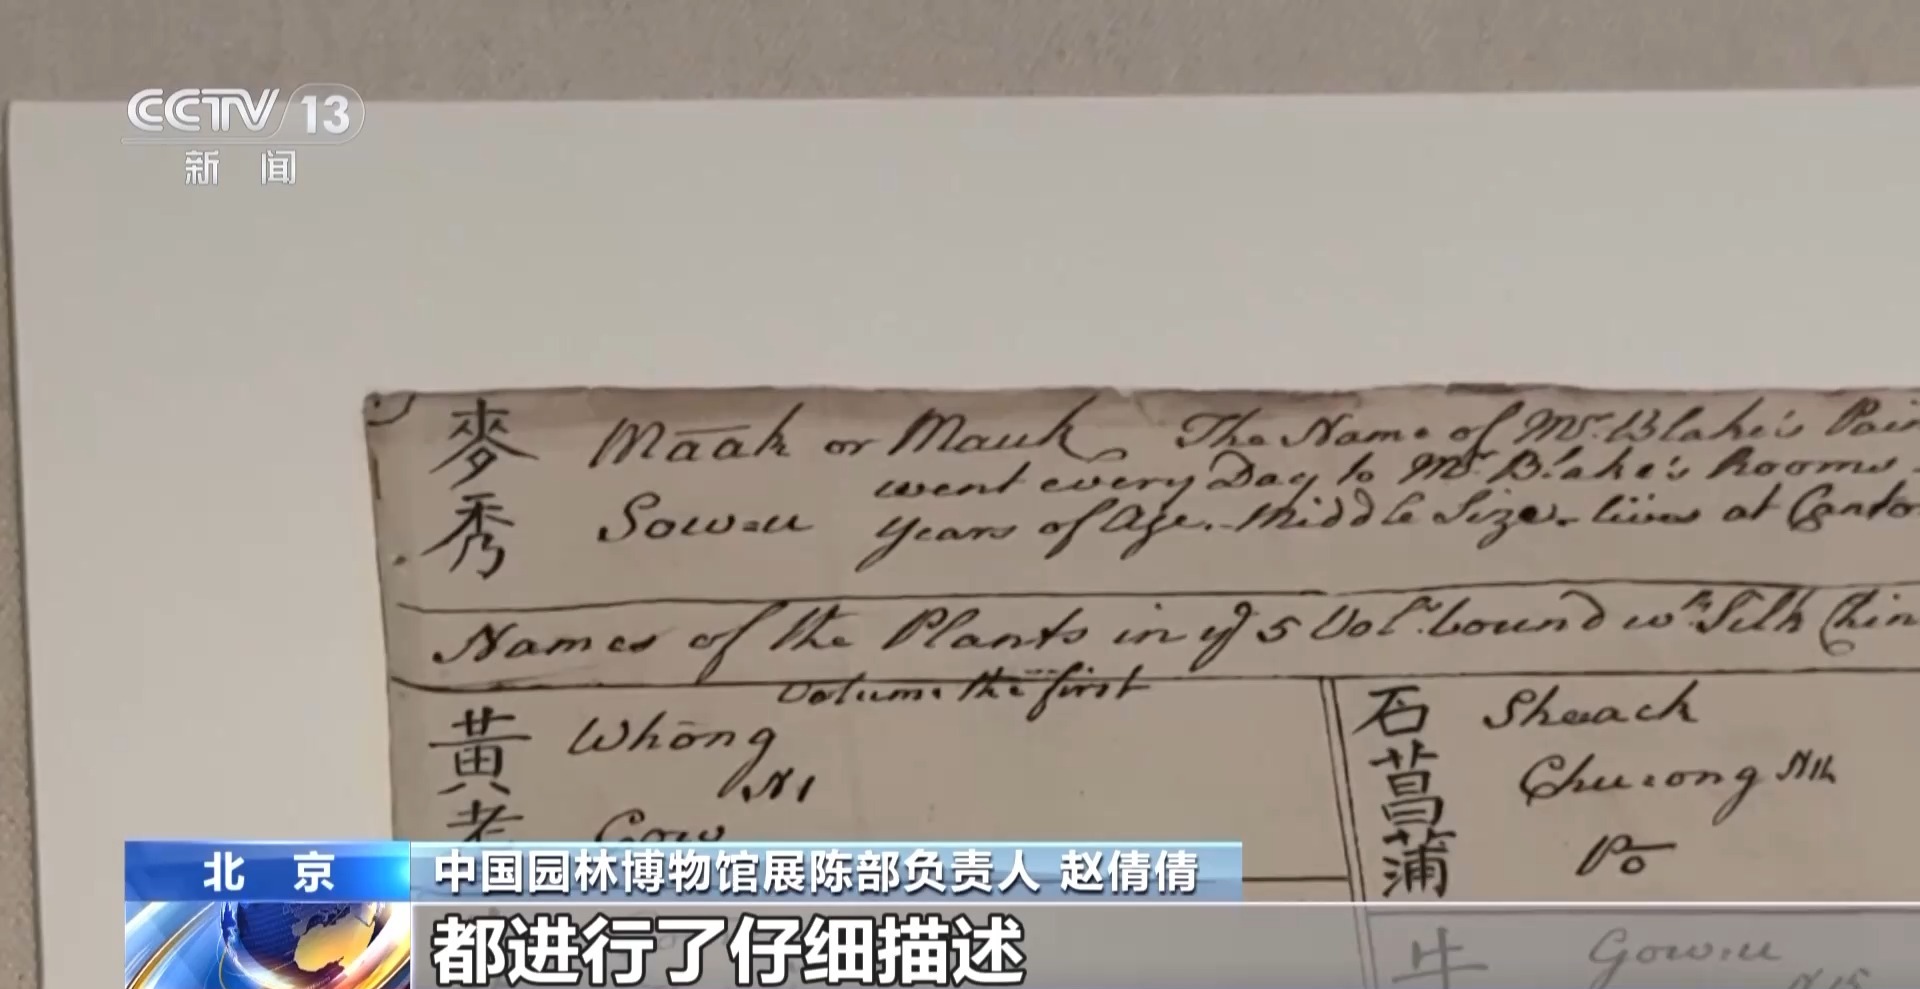 CCTV 13
新闻
麥秀
Māak or Mauk The Name of Mr. Blake's
Sow=u went every Day to Mr. Blake's Rooms
years of Age. Middle Size. lives at
Names of the Plants in ye 5 Vols. bound wth. Silk
Volume the first
黃 Whōng N1
老 Gow
石菖蒲
Sheack
Chu=ong
Pō
牛 Gow=u
北京
中国园林博物馆展陈部负责人 赵倩倩
都进行了仔细描述